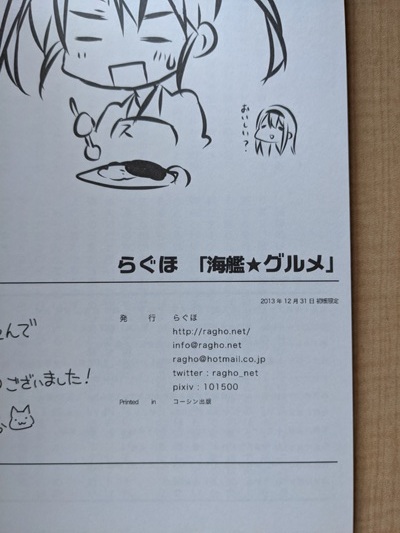 おいしい？
らぐほ 「海艦★グルメ」
2013年12月31日 初版限定
発 行 らぐほ
http://ragho.net/
info@ragho.net
ragho@hotmail.co.jp
twitter : ragho_net
pixiv : 101500
Printed in コーシン出版
んで
ございました！